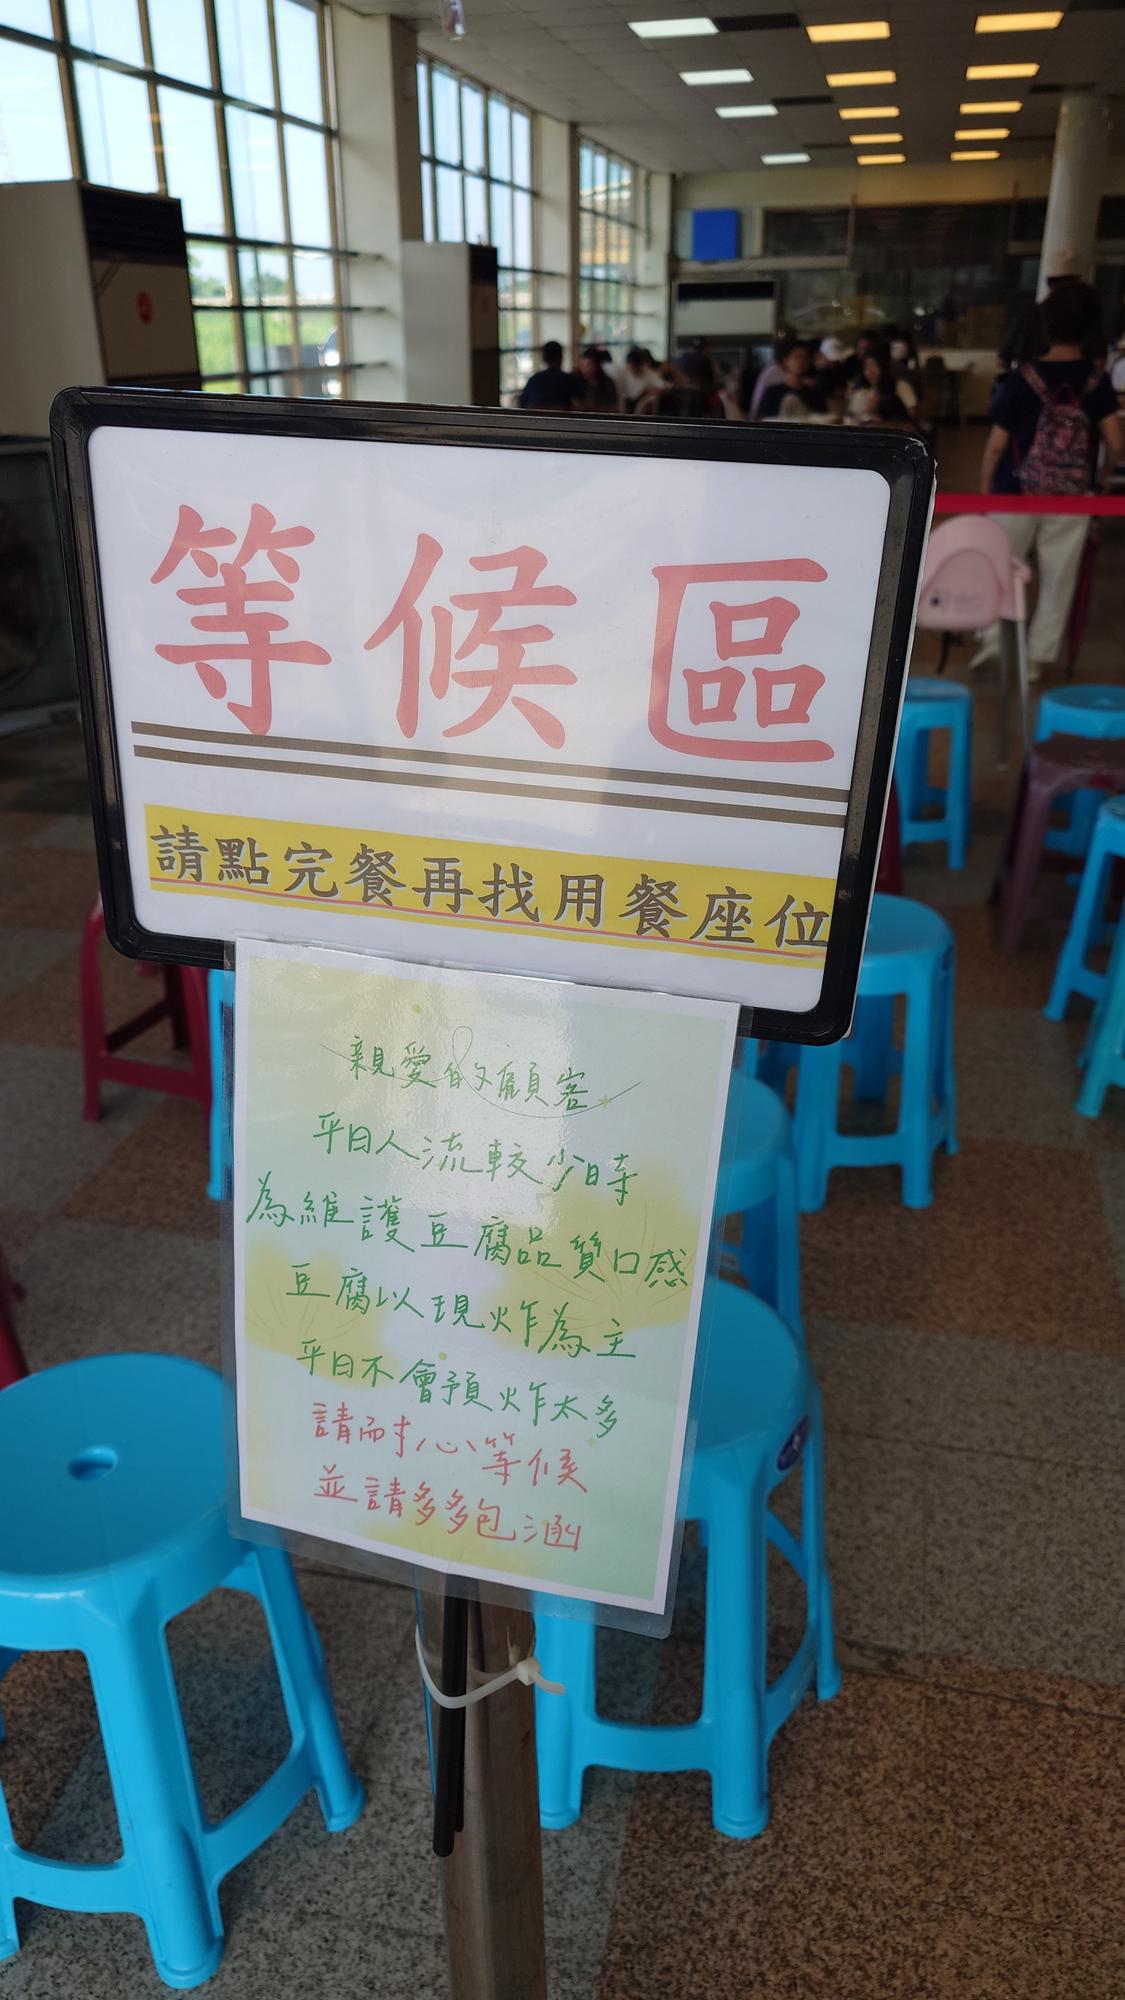 等候區
請點完餐再找用餐座位
親愛的顧客
平日人流較少時
為維護豆腐品質口感
豆腐以現炸為主
平日不會預炸太多
請耐心等候
並請多多包涵